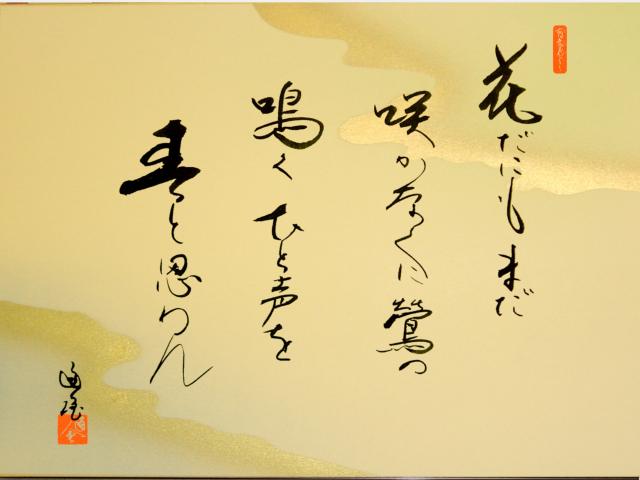 花だにもまだ
咲かなくに鶯の
鳴くひと声を
春と思わん